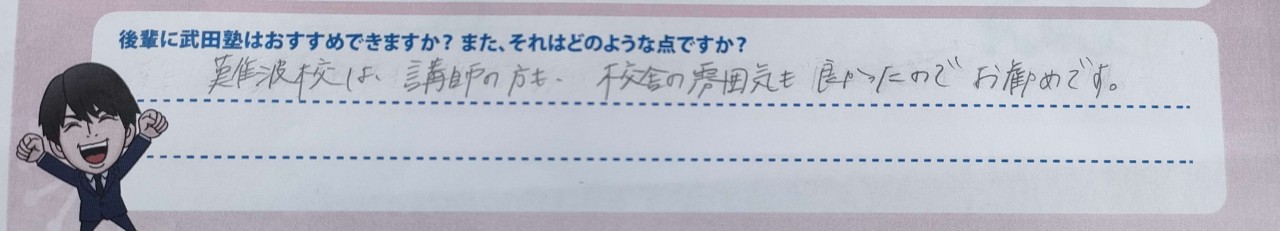 後輩に武田塾はおすすめできますか？また、それはどのような点ですか？
難波校は、講師の方も、校舎の雰囲気も良かったのでお勧めです。